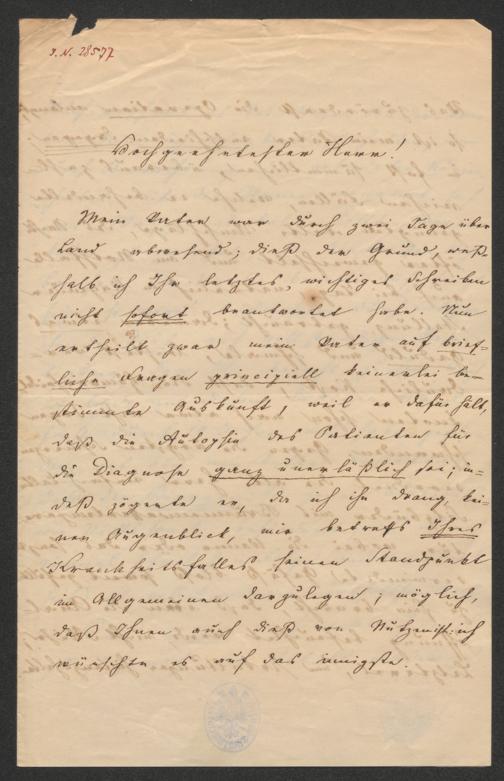 I. N. 28577
Hochgeehrtester Herr!
Mein Vater war durch zwei Tage über
Land abwesend; dieß der Grund, weß-
halb ich Ihr letztes, wichtiges Schreiben
nicht sofort beantwortet habe. Nun
ertheilt zwar mein Vater auf brief-
liche Fragen principiell keinerlei be-
stimmte Auskunft, weil er dafür hält,
daß die Autopsie des Patienten für
die Diagnose ganz unerläßlich sei; in-
deß zögerte er, da ich ihn drang, kei-
nen Augenblick, mir betreffs Ihres
Krankheitsfalles seinen Standpunkt
im Allgemeinen darzulegen; möglich,
daß Ihnen auch dieß von Nutzen ist: ich
wünschte es auf das innigste.